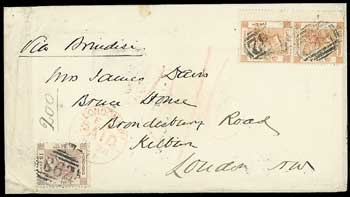 Via Brindisi
Mrs James Davis
Bruce House
Brondesbury Road
Kilburn
London NW
200
B62
LONDON